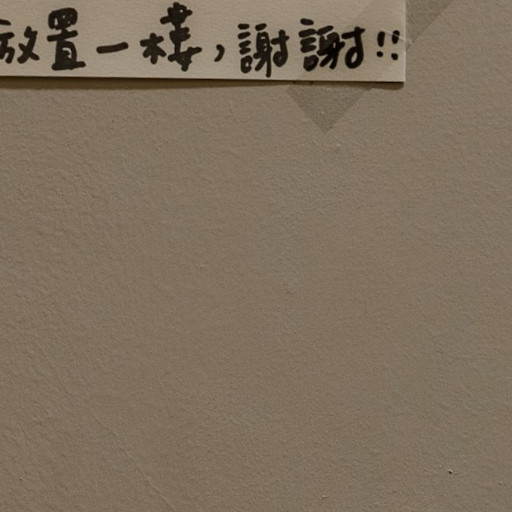 放置一樓，謝謝!!